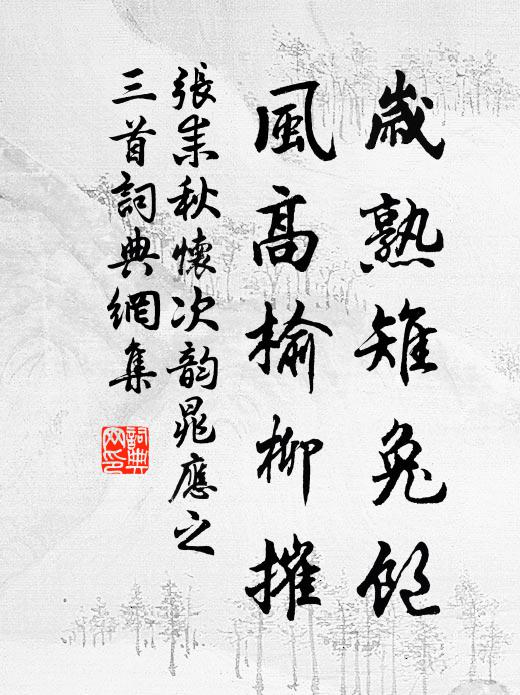 歲熟雉兔飽
風高榆柳摧
張耒秋懷次韵晁應之
三首詞典網集
詞典
网印